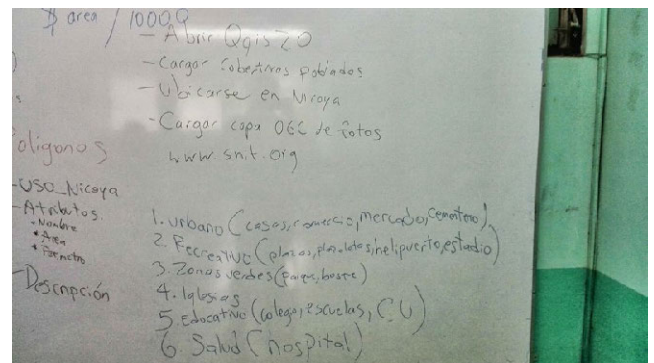 $ area / 10000
- Abrir Qgis 2.0
- Cargar Coberturas poblados
- Ubicarse en Nicoya
- Cargar capa OGC de fotos
www.snit.org
oligonos
- USO_Nicoya
- Atributos
* Nombre
* Area
* Perimetro
- Descripción
1. Urbano (casas, comercio, mercado, cementerio)
2. Recreativo (plazas, helipuerto, estadio)
3. Zonas verdes (parque, bosque)
4. Iglesias
5 Educativo (colegio, escuelas, CU)
6. Salud (hospital)